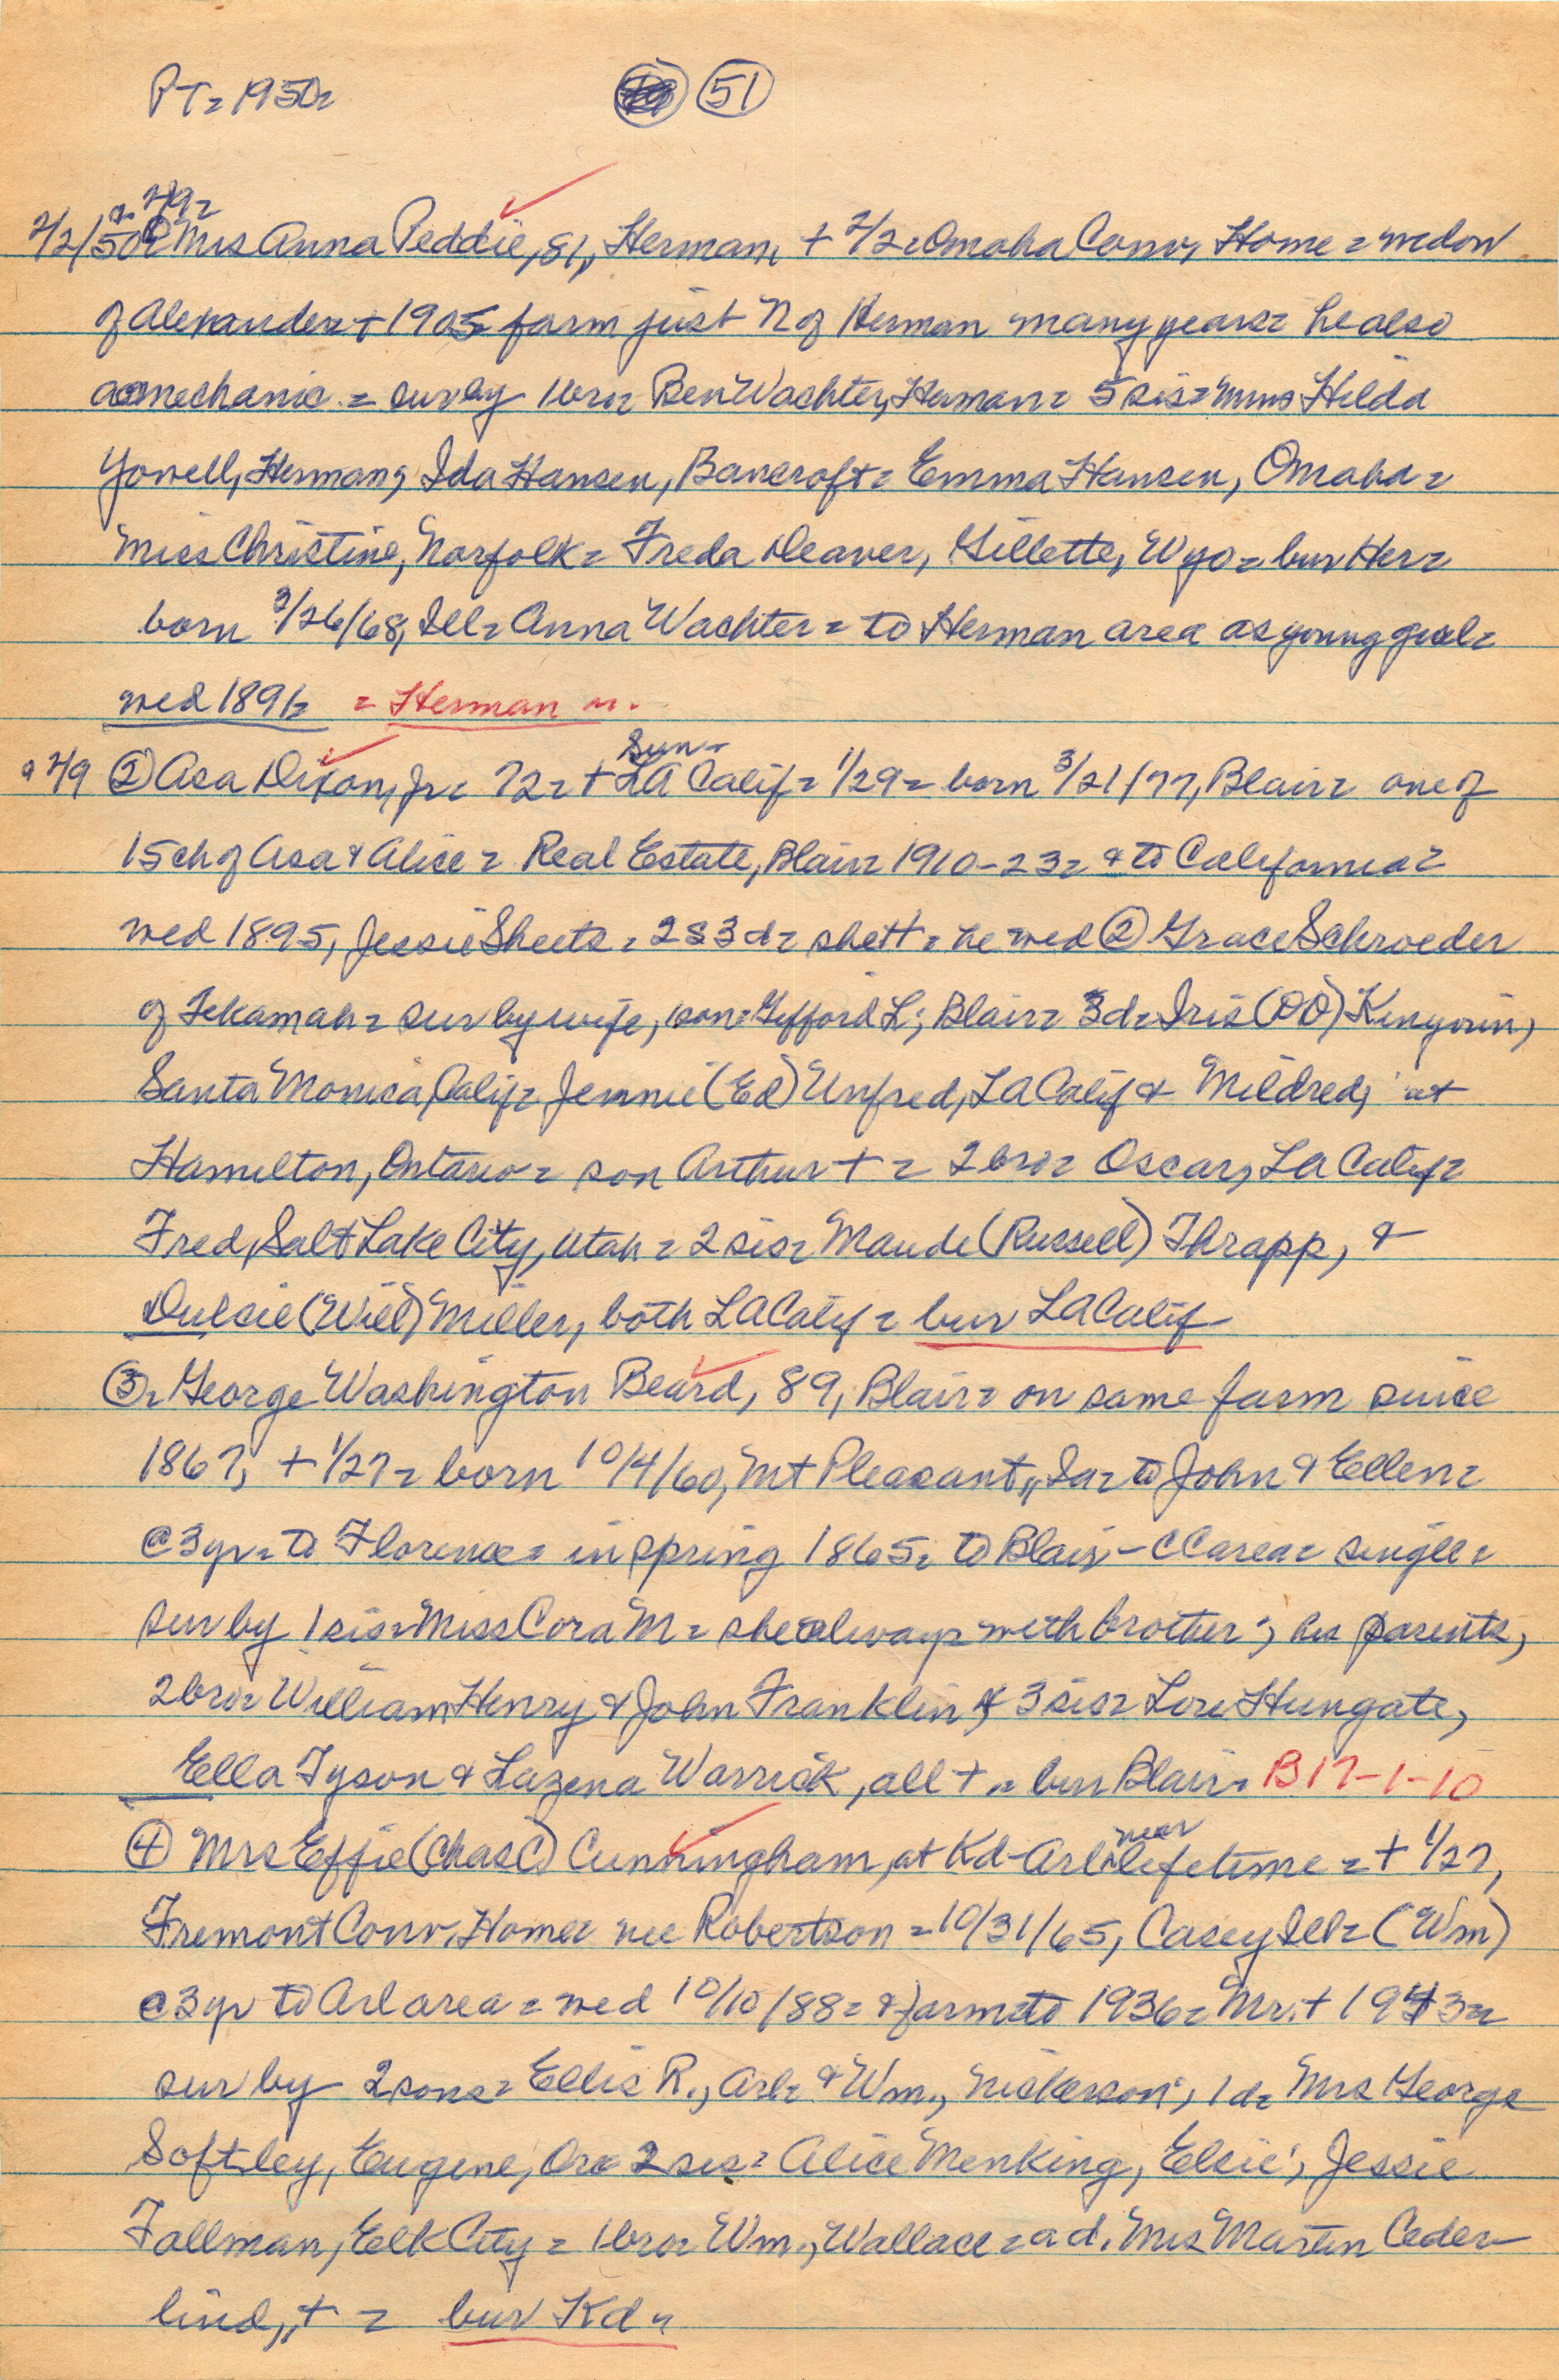 PT= 1950=
51
a 2/9=
2/2/50= Mrs Anna Peddie, 81, Herman, + 2/2= Omaha Conv, Home = widow
of Alexander + 1905= farm just N of Herman many years= he also
a mechanic = sur by 1 bro= Ben Wachter, Herman= 5 sis= Mmes Hilda
Yowell, Herman; Ida Hansen, Bancroft= Emma Hansen, Omaha=
Miss Christine, Norfolk= Freda Deaver, Gillette, Wyo= bur Her=
born 3/26/68, Ill= Anna Wachter = to Herman area as young girl=
wed 1891= = Herman n.
a 2/9 ② Asa Dixon, Jr= 72= + Sun- LA Calif= 1/29= born 3/21/77, Blair= one of
15 ch of Asa & Alice = Real Estate, Blair= 1910-23= & to California=
wed 1895, Jessie Sheets = 2s 3d= she+ = he wed ② Grace Schroeder
of Tekamah= sur by wife, son= Gifford L; Blair= 3d= Iris (OO) Kinyoun,
Santa Monica, Calif= Jennie (Ed) Unfred, LA Calif & Mildred, at
Hamilton, Ontario= son Arthur + = 2 bro= Oscar, LA Calif=
Fred, Salt Lake City, Utah = 2 sis= Maude (Russell) Thrapp, &
Dulsie (Will) Miller, both LA Calif = bur LA Calif
③= George Washington Beard, 89, Blair= on same farm since
1867, + 1/27= born 10/4/60, Mt Pleasant, Ia= to John & Ellen=
@ 3 yr= to Florence= in spring 1865= to Blair - CC area= single=
sur by 1 sis= Miss Cora M= she always with brother; his parents,
2 bro= William Henry & John Franklin & 3 sis= Lore Hungate,
Ella Tyson & Lazena Warrick, all + = bur Blair= B 17-1-10
④ Mrs Effie (Chas C) Cunningham, at Kd-Arl near lifetime = + 1/27,
Fremont Conv. Home= nee Robertson = 10/31/65, Casey Ill= (Wm)
@ 3 yr to Arl area = wed 10/10/88= & farm= to 1936= Mr. + 1943=
sur by 2 sons= Ellis R., Arl= & Wm., Nickerson; 1 d= Mrs George
Softley, Eugene, Ore 2 sis= Alice Menking, Elsie; Jessie
Fallman, Elk City = 1 bro= Wm., Wallace = a d. Mrs Martin Ceder-
lind, + = bur Kd=